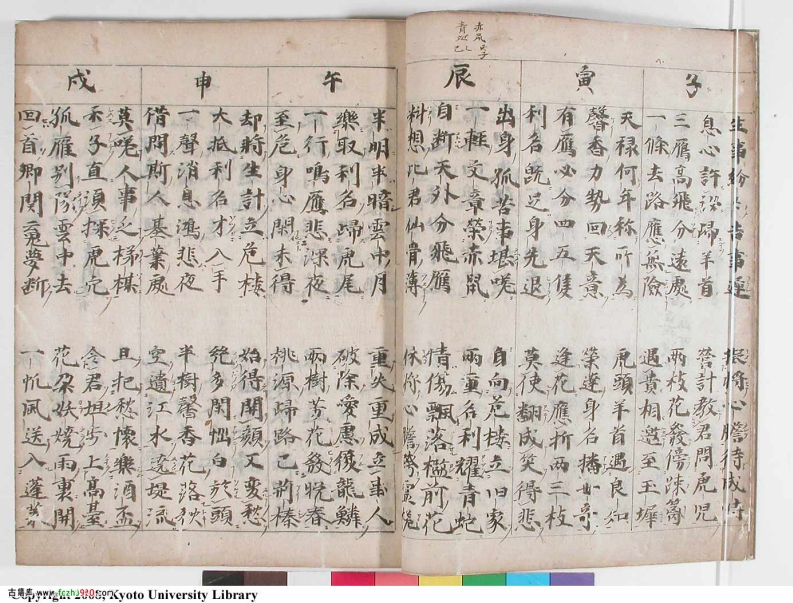 赤鼠
青蛇
子
息心許訟歸羊首 營計教君問虎児
三鴈高飛分遠處 兩枝花發傍疎
一條去路應無險 遇貴相邀至玉墀
寅
天禄何年称所為 虎頭羊首遇良知
馨香力勢回天意 榮達身名播世奇
有鴈必分四五隻 逢花應折兩三枝
利名既足身先退 莫使翻成笑得悲
辰
出身孤苦事堪嗟 自向危楼立旧家
一軸文章榮赤鼠 兩重名利耀青蛇
自断天外分飛鴈 情傷飄落檻前花
料想此君仙骨薄 休称心膽
午
半明半暗雲中月 重失重成立事人
樂取利名歸虎尾 破除愛慮復龍鱗
一行鳴鴈悲深夜 兩樹芳花發晚春
至危身心閑未得 桃源歸路已荊榛
申
却將生計立危楼 始得開顏又變愁
大抵利名才入手 絶多閑悩白於頭
一聲消息鴻悲夜 半樹馨香花落秋
借問斯人基業處 空遺江水遶堤流
戌
莫嗟人事乏梯媒 且把愁懷樂酒盃
示子直須探虎穴 令君坦步上高臺
孤雁別隊雲中去 花朶妖嬈雨裏開
回首鄉関夢断 一帆風送入蓬莱
Kyoto University Library